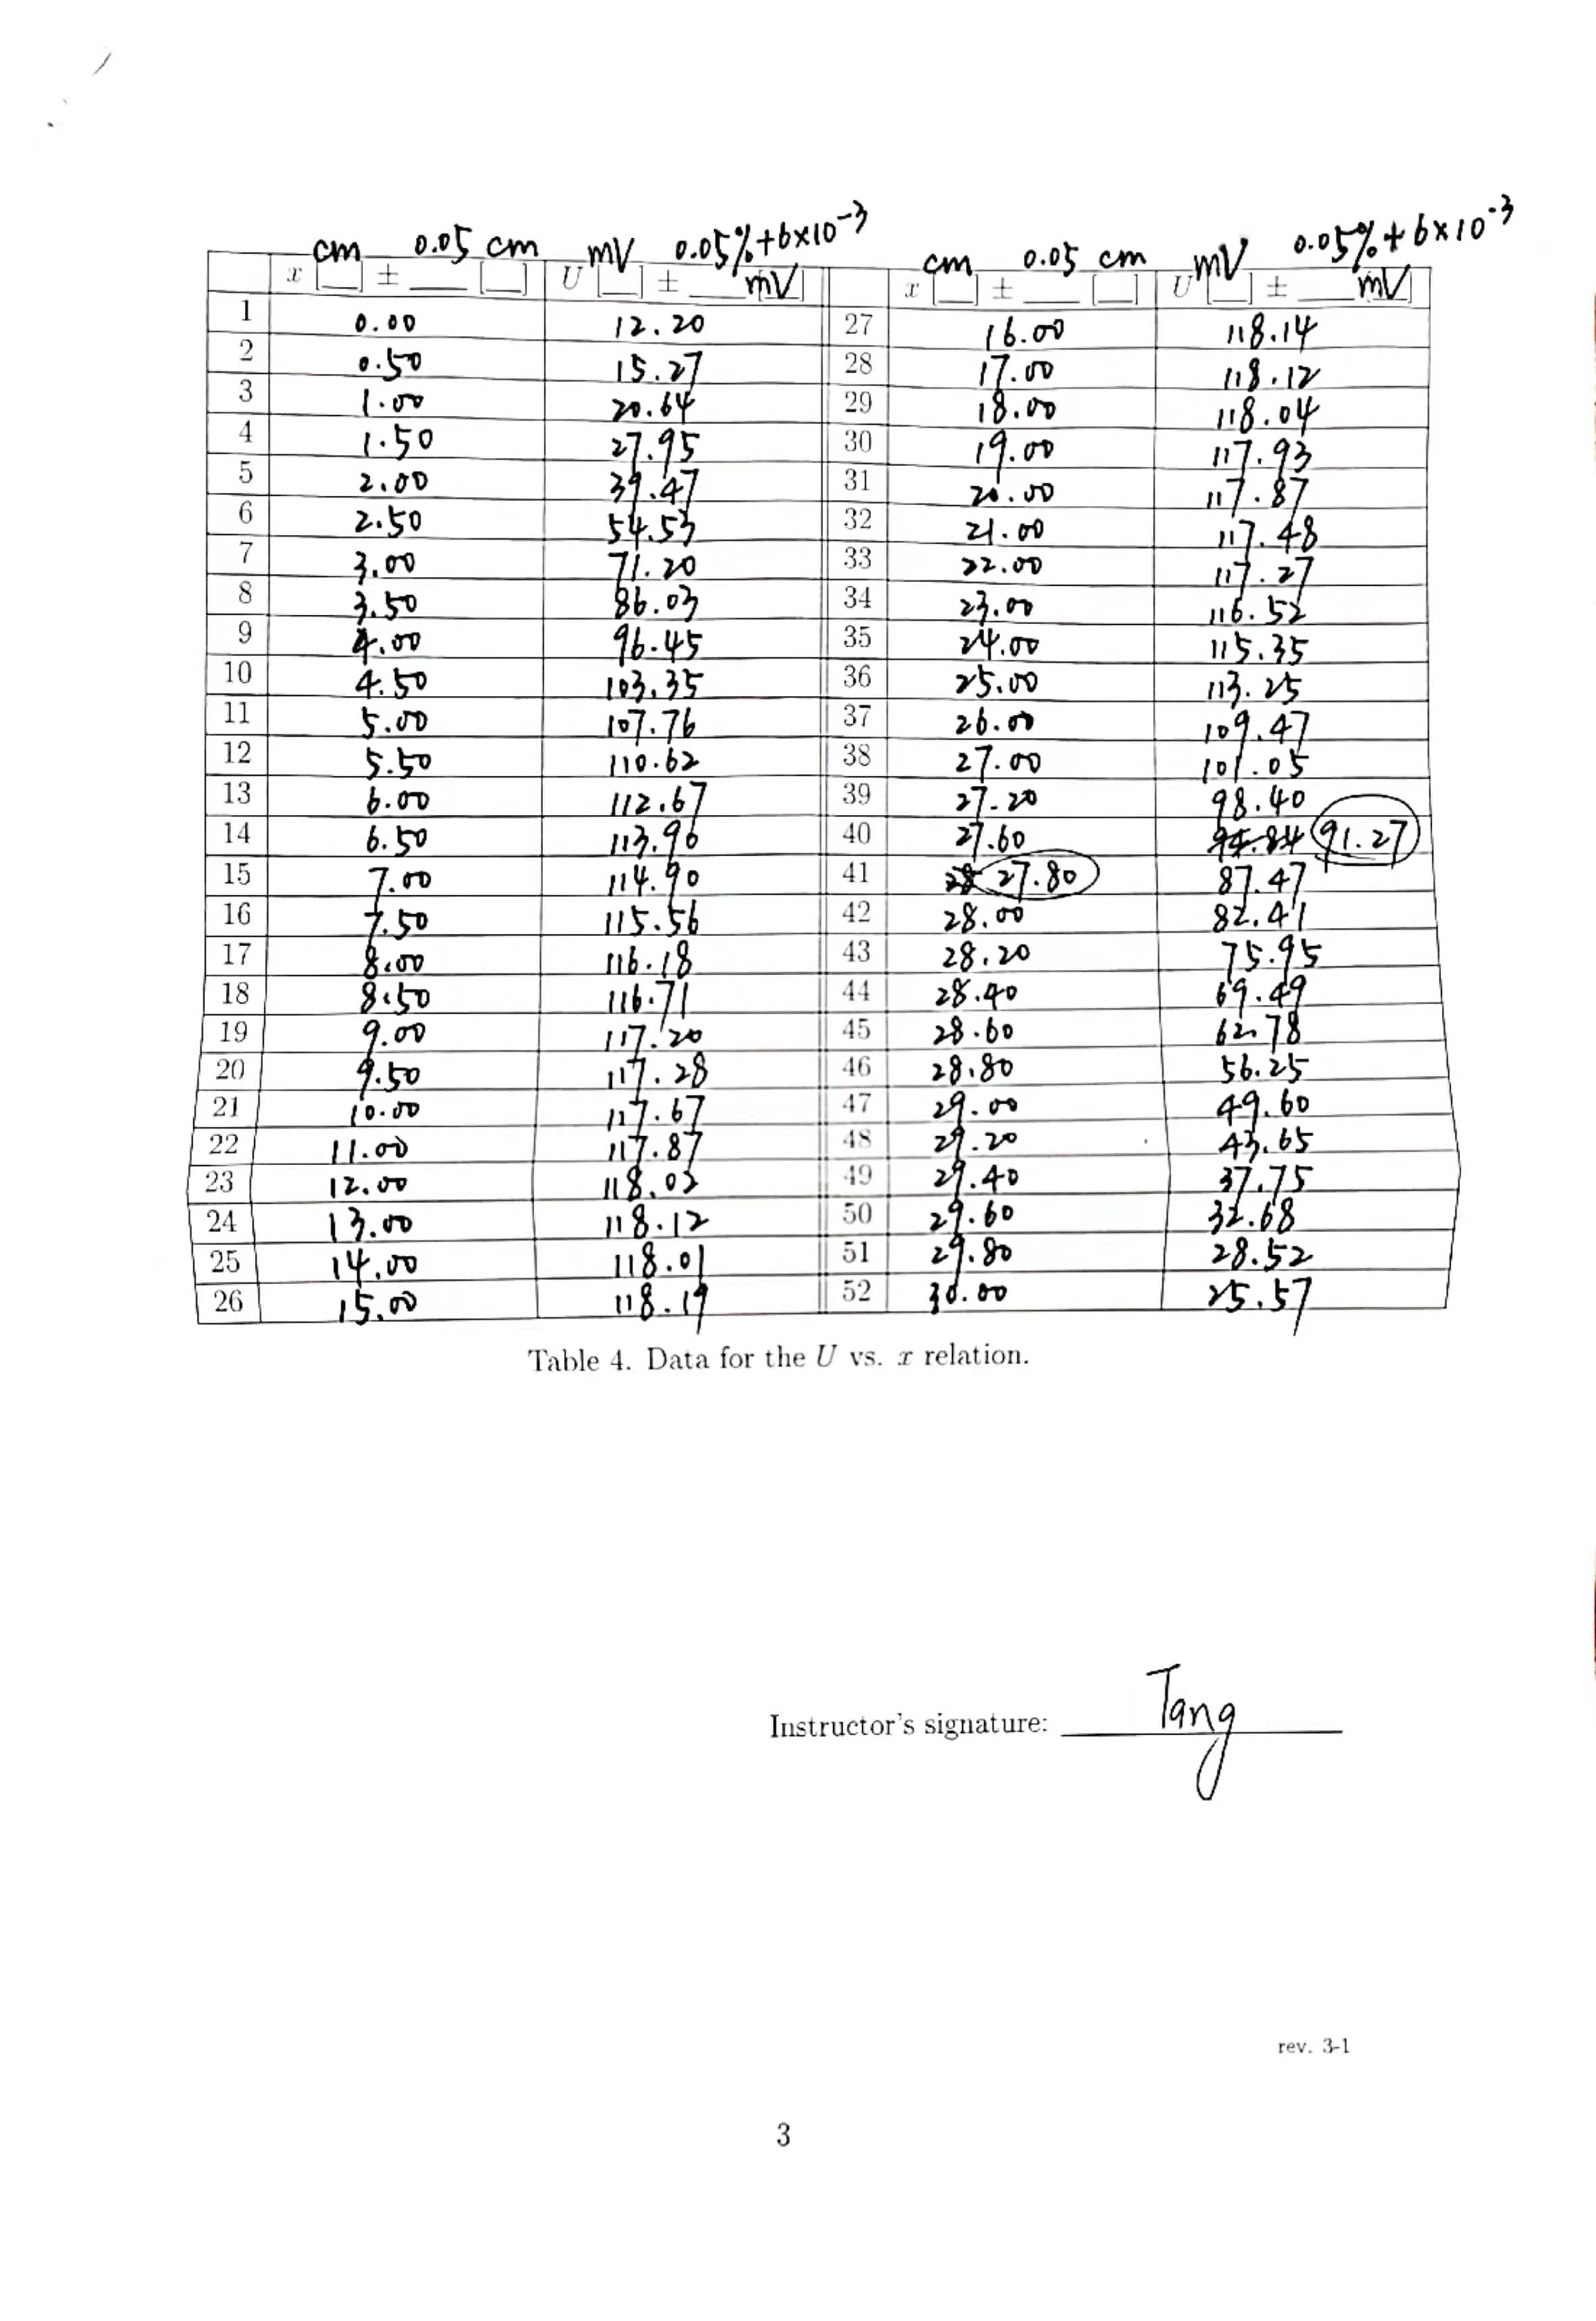 cm 0.05 cm mV 0.05%+6×10⁻³ cm 0.05 cm mV 0.05%+6×10⁻³
x [ ] ± ___ [ ] U [ ] ± ___ mV] x [ ] ± ___ [ ] U [ ] ± ___ mV]
1 0.00 12.20 27 16.00 118.14
2 0.50 15.27 28 17.00 118.12
3 1.00 20.64 29 18.00 118.04
4 1.50 27.95 30 19.00 117.93
5 2.00 39.47 31 20.00 117.87
6 2.50 54.53 32 21.00 117.48
7 3.00 71.20 33 22.00 117.27
8 3.50 86.03 34 23.00 116.52
9 4.00 96.45 35 24.00 115.35
10 4.50 103.35 36 25.00 113.25
11 5.00 107.76 37 26.00 109.47
12 5.50 110.62 38 27.00 101.05
13 6.00 112.67 39 27.20 98.40
14 6.50 113.96 40 27.60 94.84 91.27
15 7.00 114.90 41 28 27.80 87.47
16 7.50 115.56 42 28.00 82.41
17 8.00 116.18 43 28.20 75.95
18 8.50 116.71 44 28.40 69.49
19 9.00 117.20 45 28.60 62.78
20 9.50 117.28 46 28.80 56.25
21 10.00 117.67 47 29.00 49.60
22 11.00 117.87 48 29.20 43.65
23 12.00 118.02 49 29.40 37.75
24 13.00 118.12 50 29.60 32.68
25 14.00 118.01 51 29.80 28.52
26 15.00 118.19 52 30.00 25.57
Table 4. Data for the U vs. x relation.
Instructor's signature: Tang
rev. 3-1
3